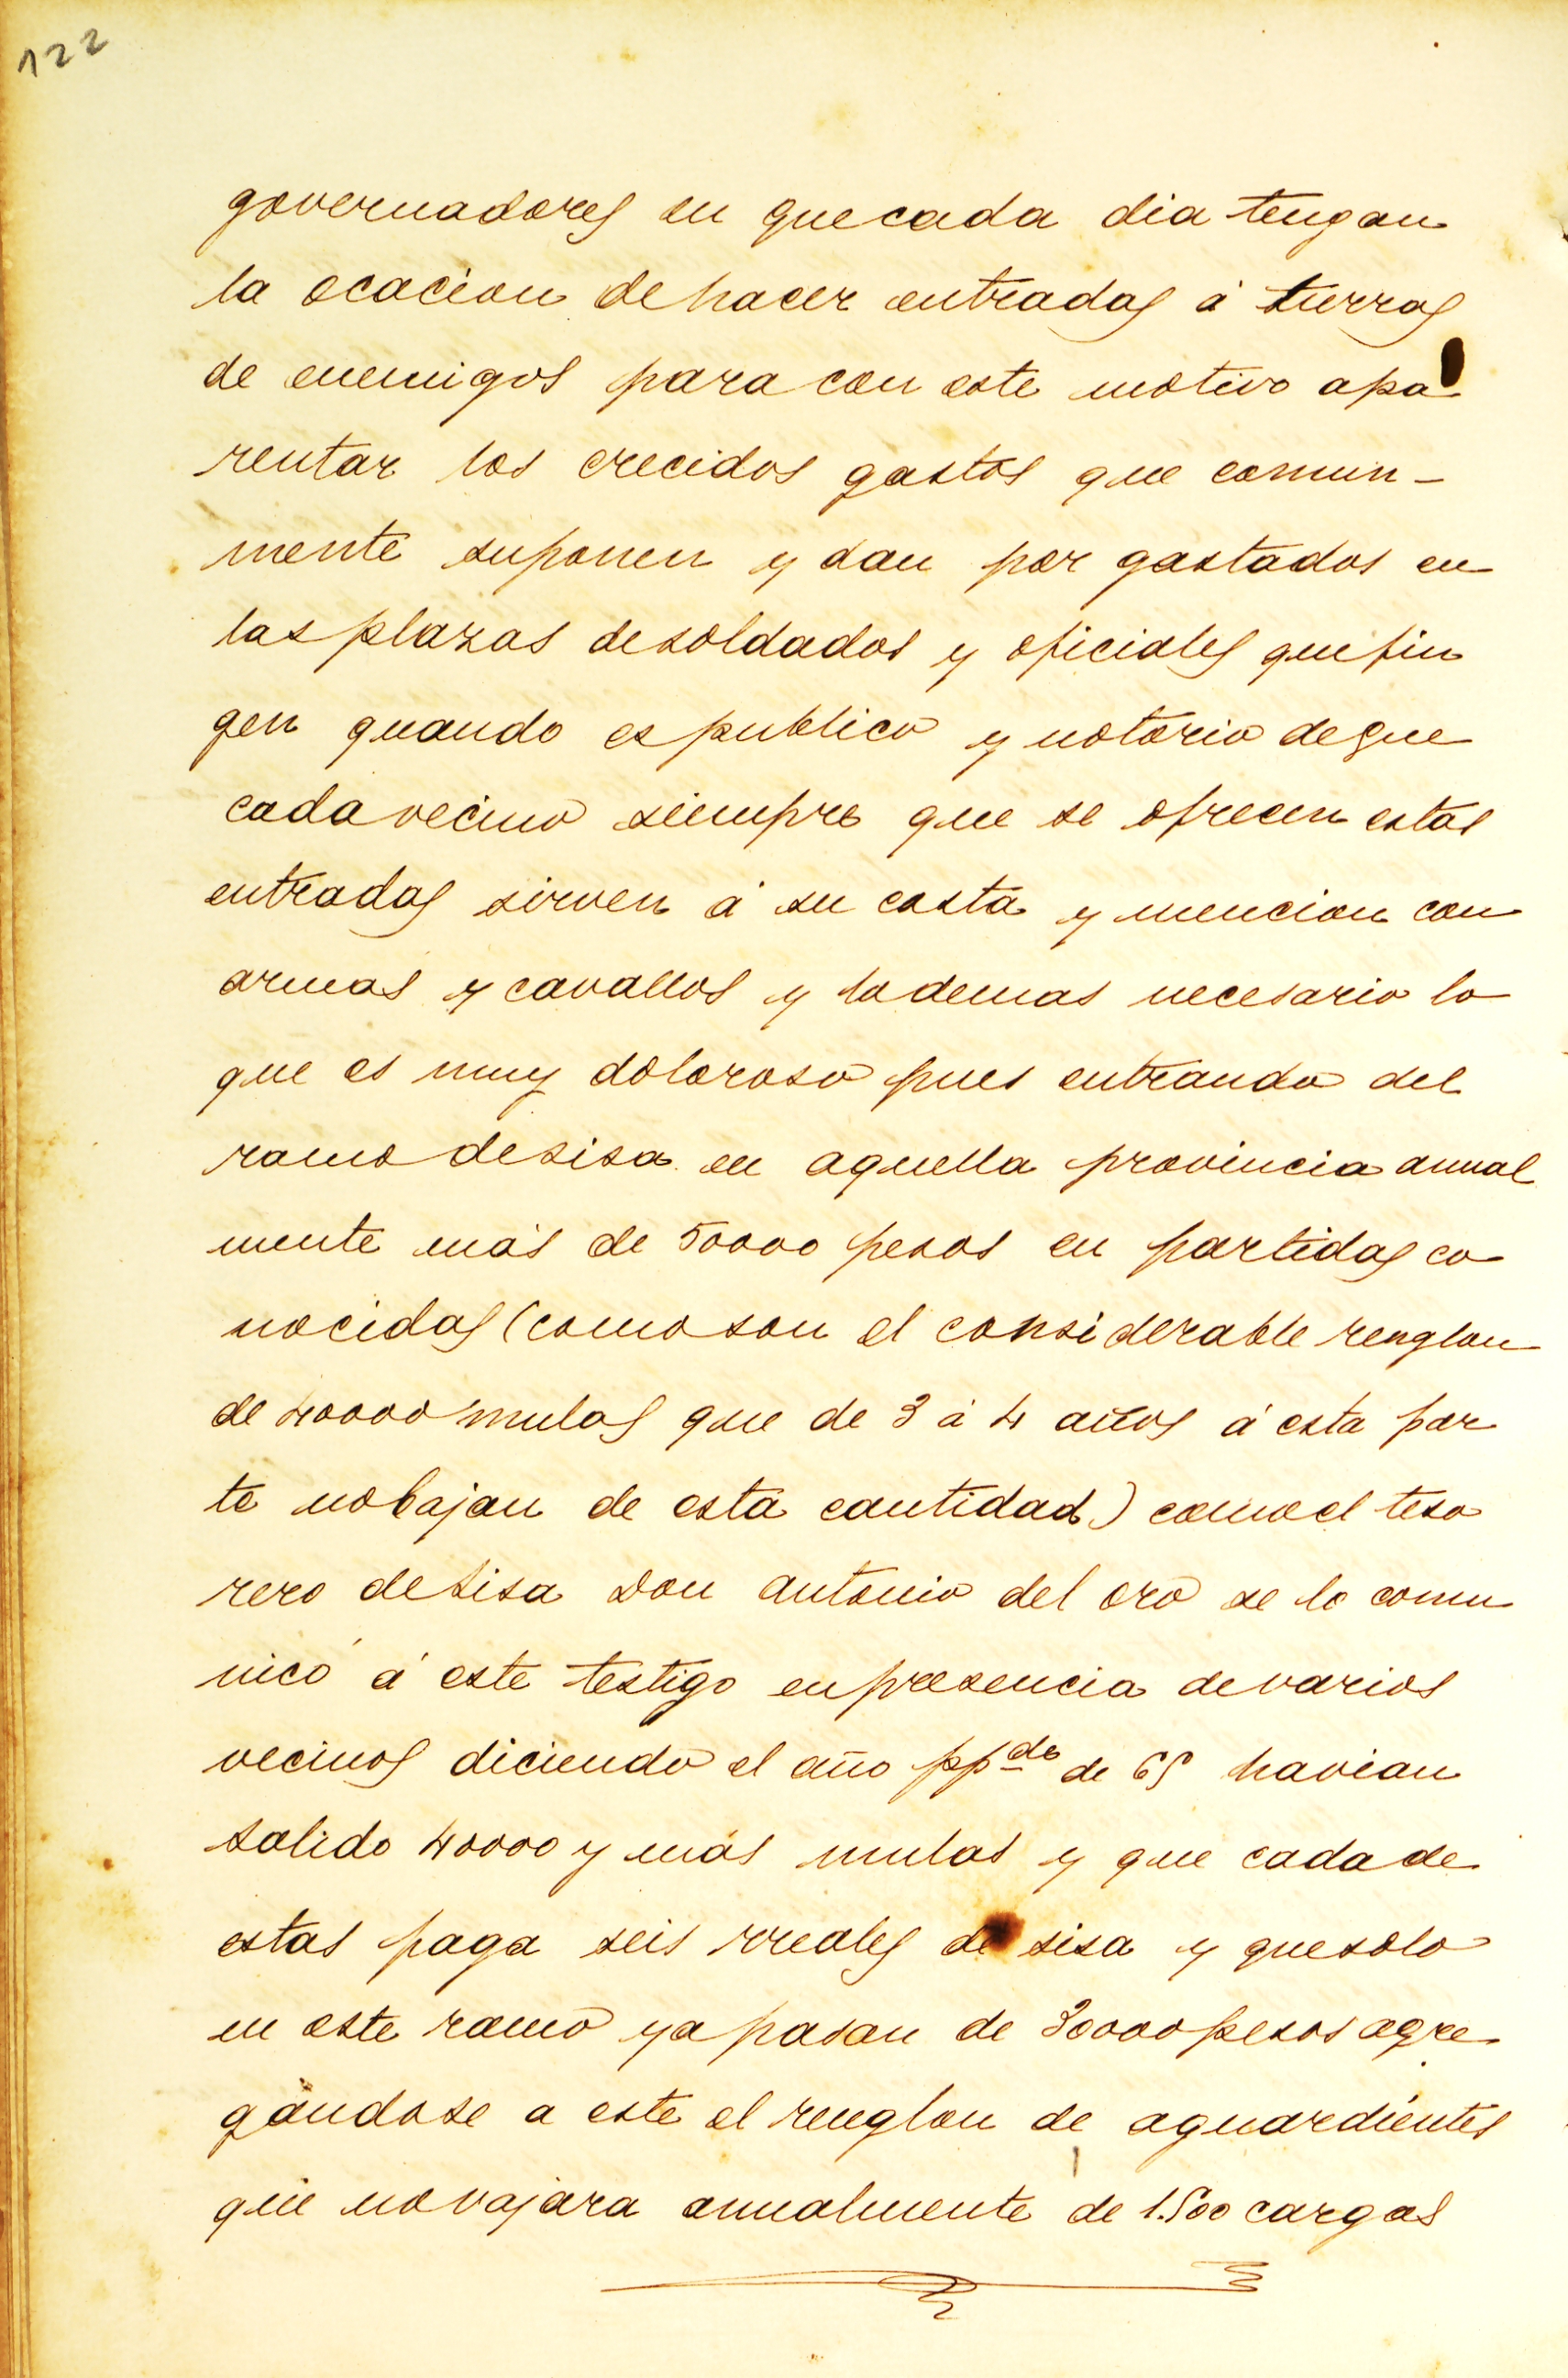 122
governadores en que cada dia tengan
la ocacion de hacer entradas á tierras
de enemigos para con este motivo apa
rentar los crecidos gastos que comun-
mente suponen y dan por gastados en
las plazas de soldados y oficiales que fin
gen quando es publico y notorio de que
cada vecino siempre que se ofrecen estas
entradas sirven á su costa y mencion con
armas y cavallos y lo demas necesario lo
que es muy doloroso pues entrando del
ramo de sisa en aquella provincia annual
mente más de 50000 pesos en partidas co
nocidas (como son el considerable renglon
de 40000 mulas que de 3 á 4 años á esta par
te no bajan de esta cantidad) como el teso
rero de sisa Don Antonio del Oro se lo comu
nicó á este testigo en presencia de varios
vecinos diciendo el año pp<sup>do</sup> de 65 havian
salido 40000 y más mulas y que cada de
estas paga seis rreales de sisa y que solo
en este ramo ya pasan de 30000 pesos agre
gándose a este el renglon de aguardientes
que no vajara annualmente de 1.500 cargas